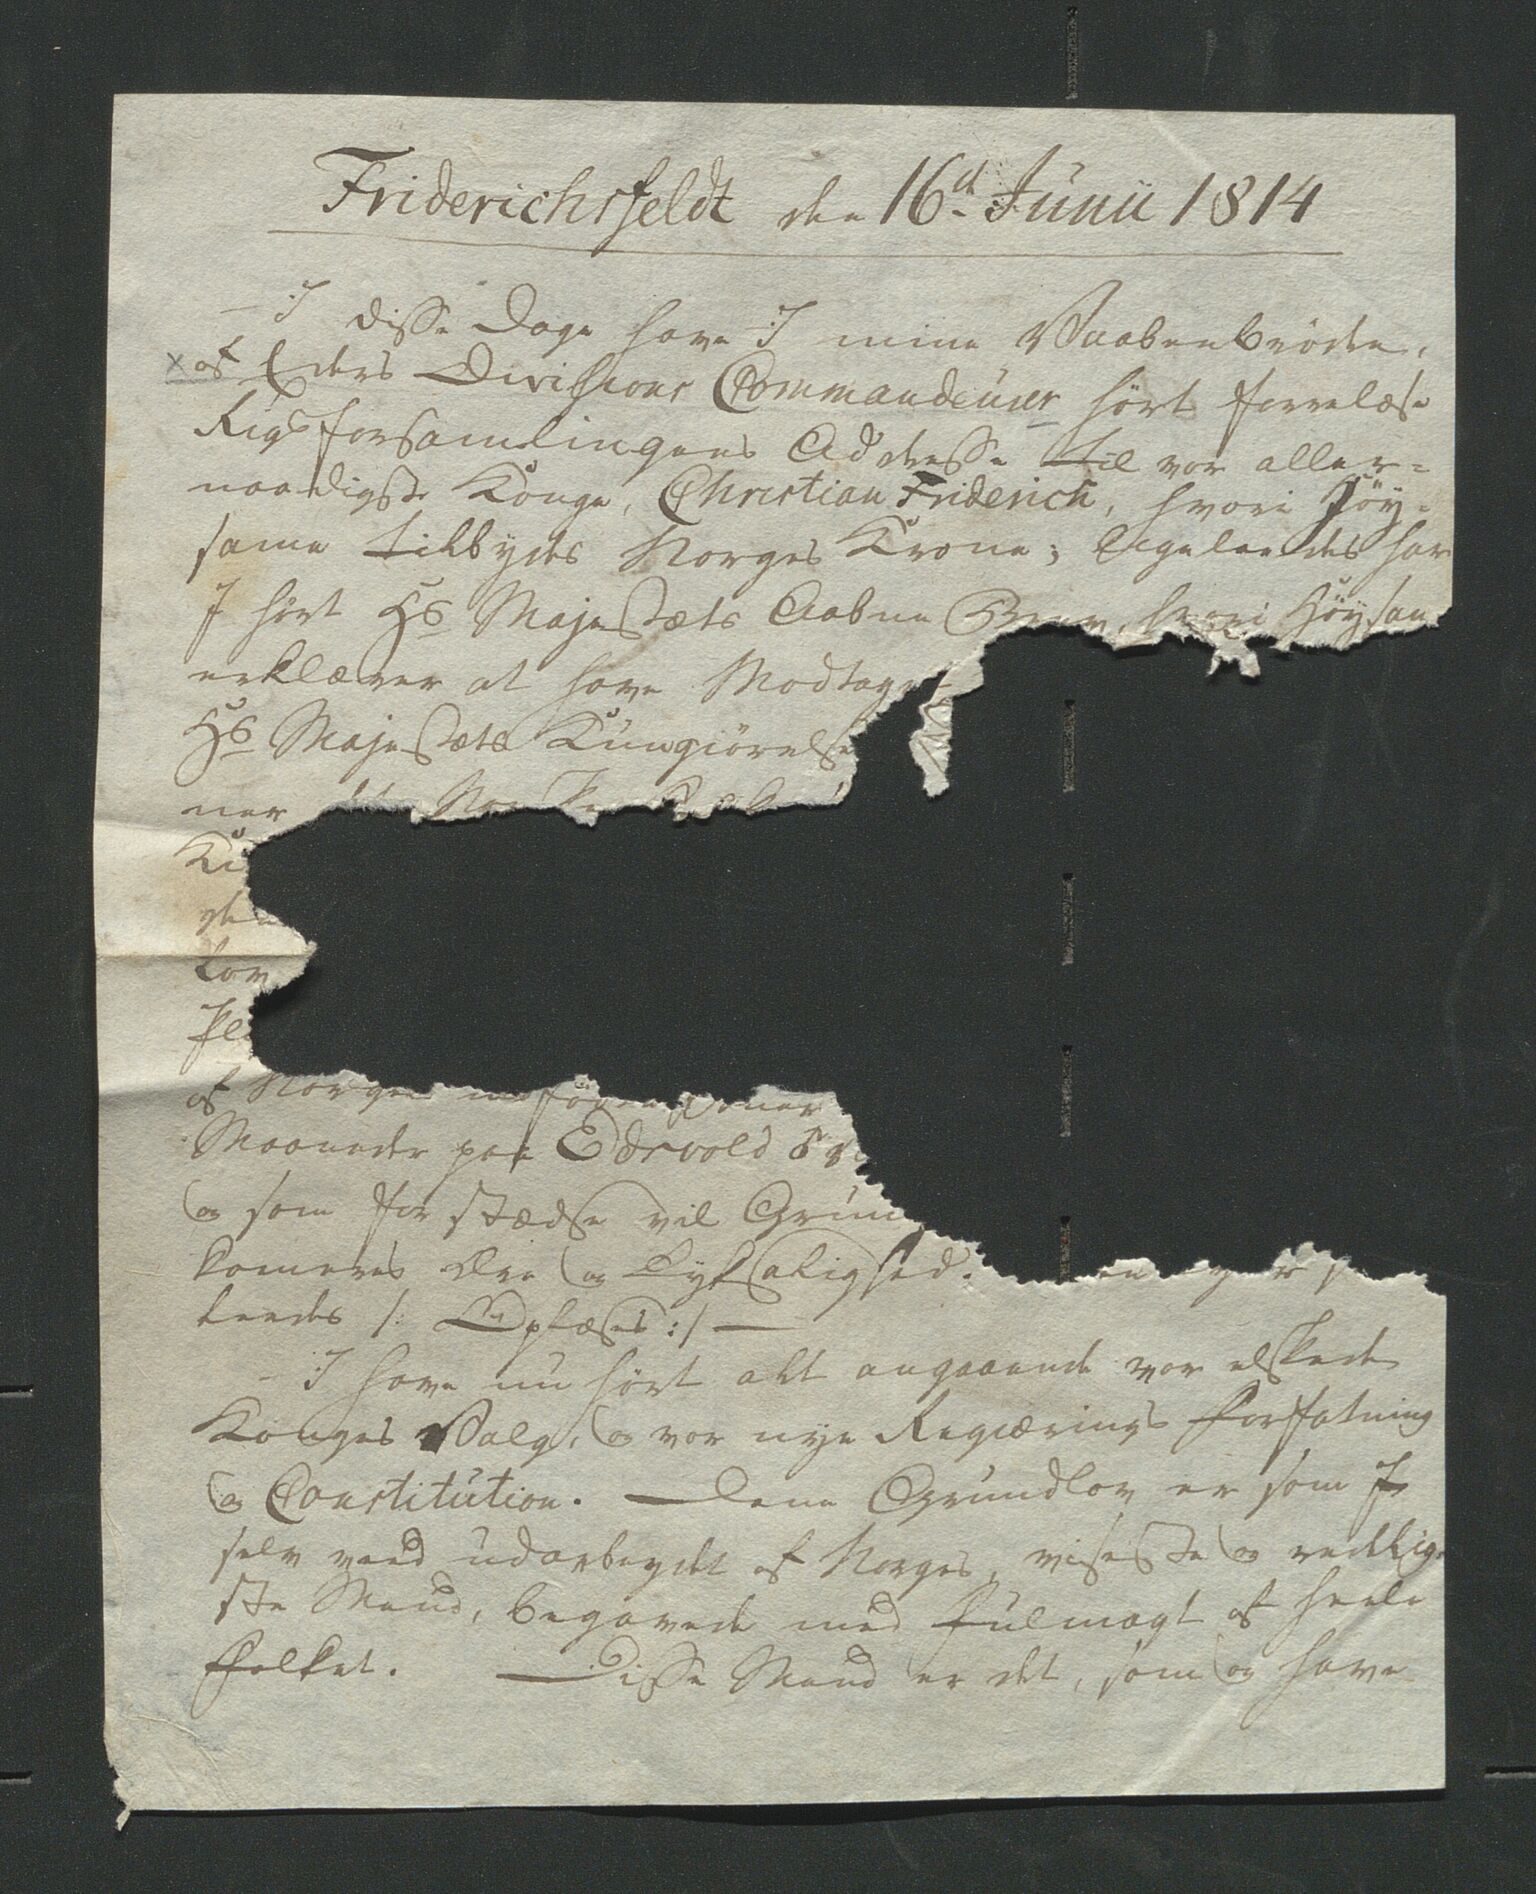 Friderichsfeldt den 16d Junii 1814
I disse Dage have I mine Vaabenbrödre,
af Eders Divisions Commandeurer hört forrelæse
Rigsforsamlingens Addresse til vor aller-
naadigste Konge, Christian Friderich, hvori Höy-
samme tilbydes Norges Krone; ligeleedes har
I hört Hs Majestæts Aabne Brev, hvori Höysam
erklærer at have Modtaget
Hs Majestæts Kungiörelse
ner det Norske
Ki
lov
af Norges
Maaneder paa Edsvold
og som for stædse vil Grun
komeres Ære og Lyksalighed.
leedes /: Oplæses :/
I have nu hört alt angaaende vor elskede
Konges Valg, og vor nye Regiærings Forfatning
og Constitution. — Denne Grundlov er som I
selv veed udarbeydet af Norges viseste og redelig-
ste Mænd, begavede med Fulmagt af heele
Folket. — Disse Mænd er det, som og have